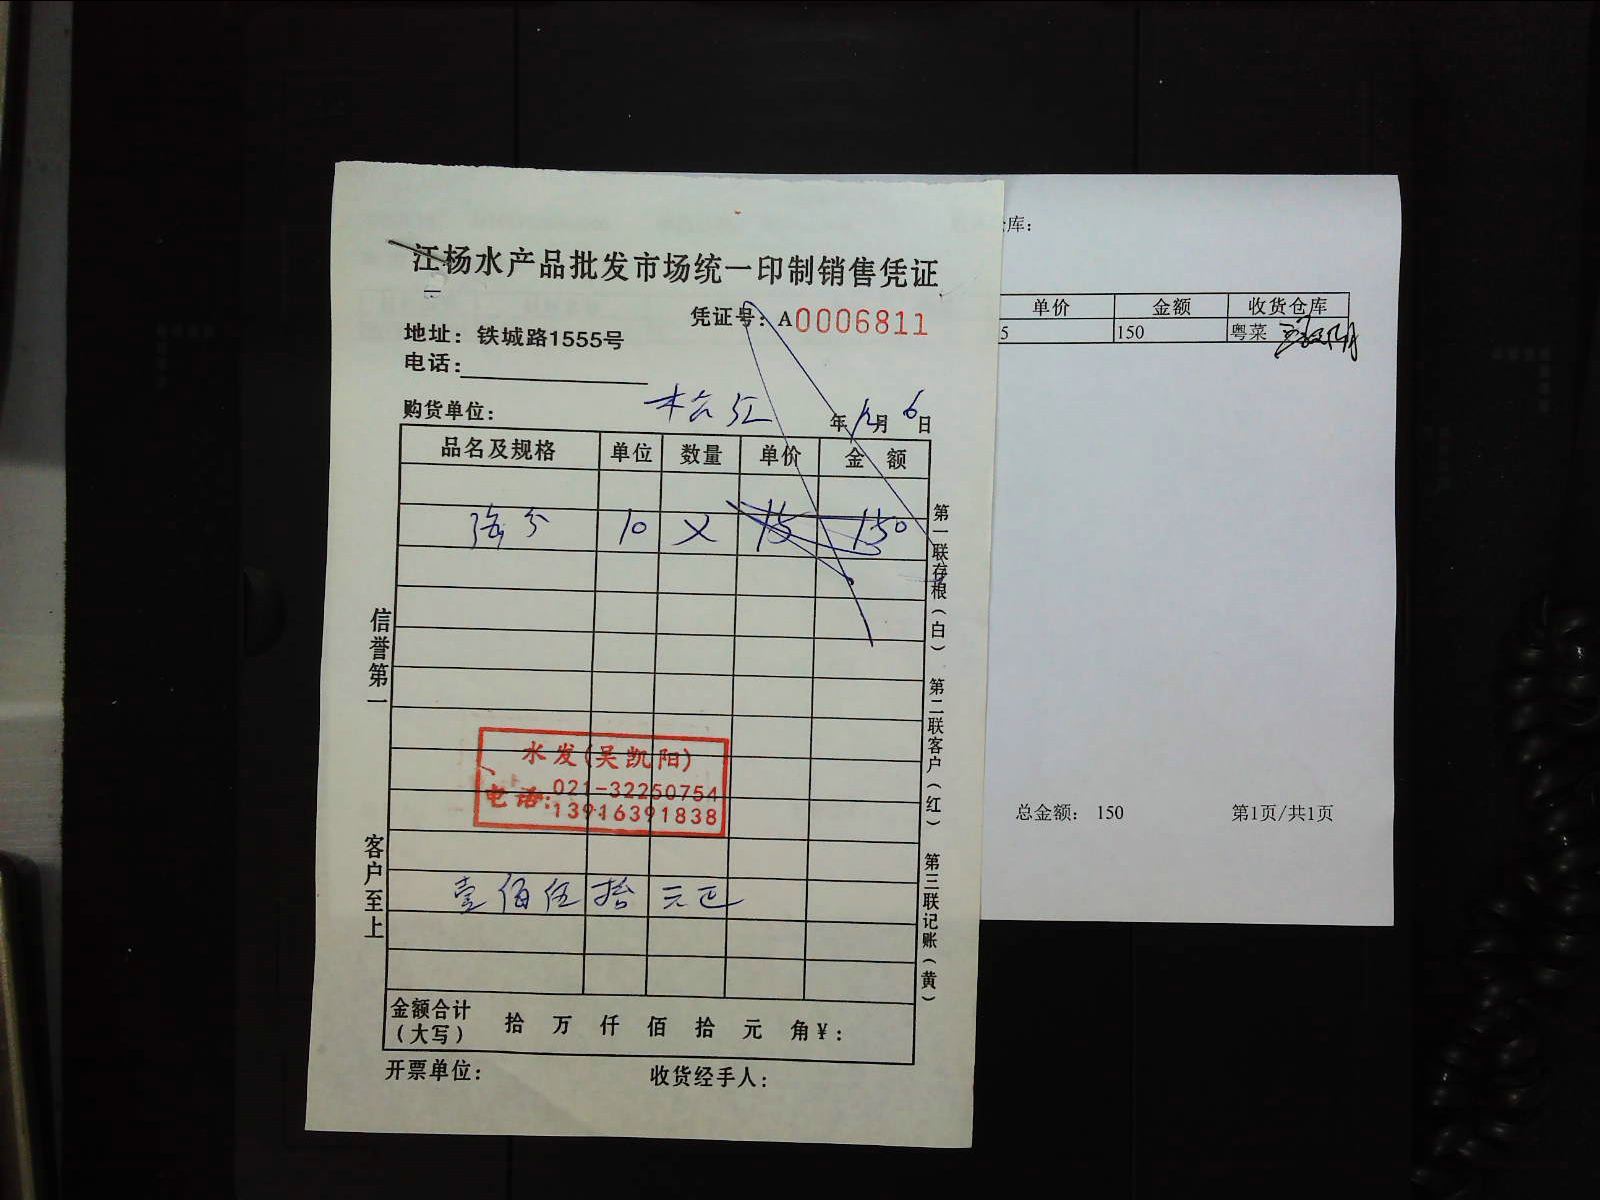 江杨水产品批发市场统一印制销售凭证
凭证号：A0006811
地址：铁城路1555号
电话：
购货单位： 松江 年12月6日
品名及规格 单位 数量 单价 金额
10 15 150
水发(吴凯阳)
电话：021-32250754
13916391838
壹佰伍拾元正
金额合计（大写） 拾 万 仟 佰 拾 元 角 ¥：
开票单位： 收货经手人：
信誉第一
客户至上
第一联存根（白）
第二联客户（红）
第三联记账（黄）
库：
单价 金额 收货仓库
5 150 粤菜
总金额： 150 第1页/共1页